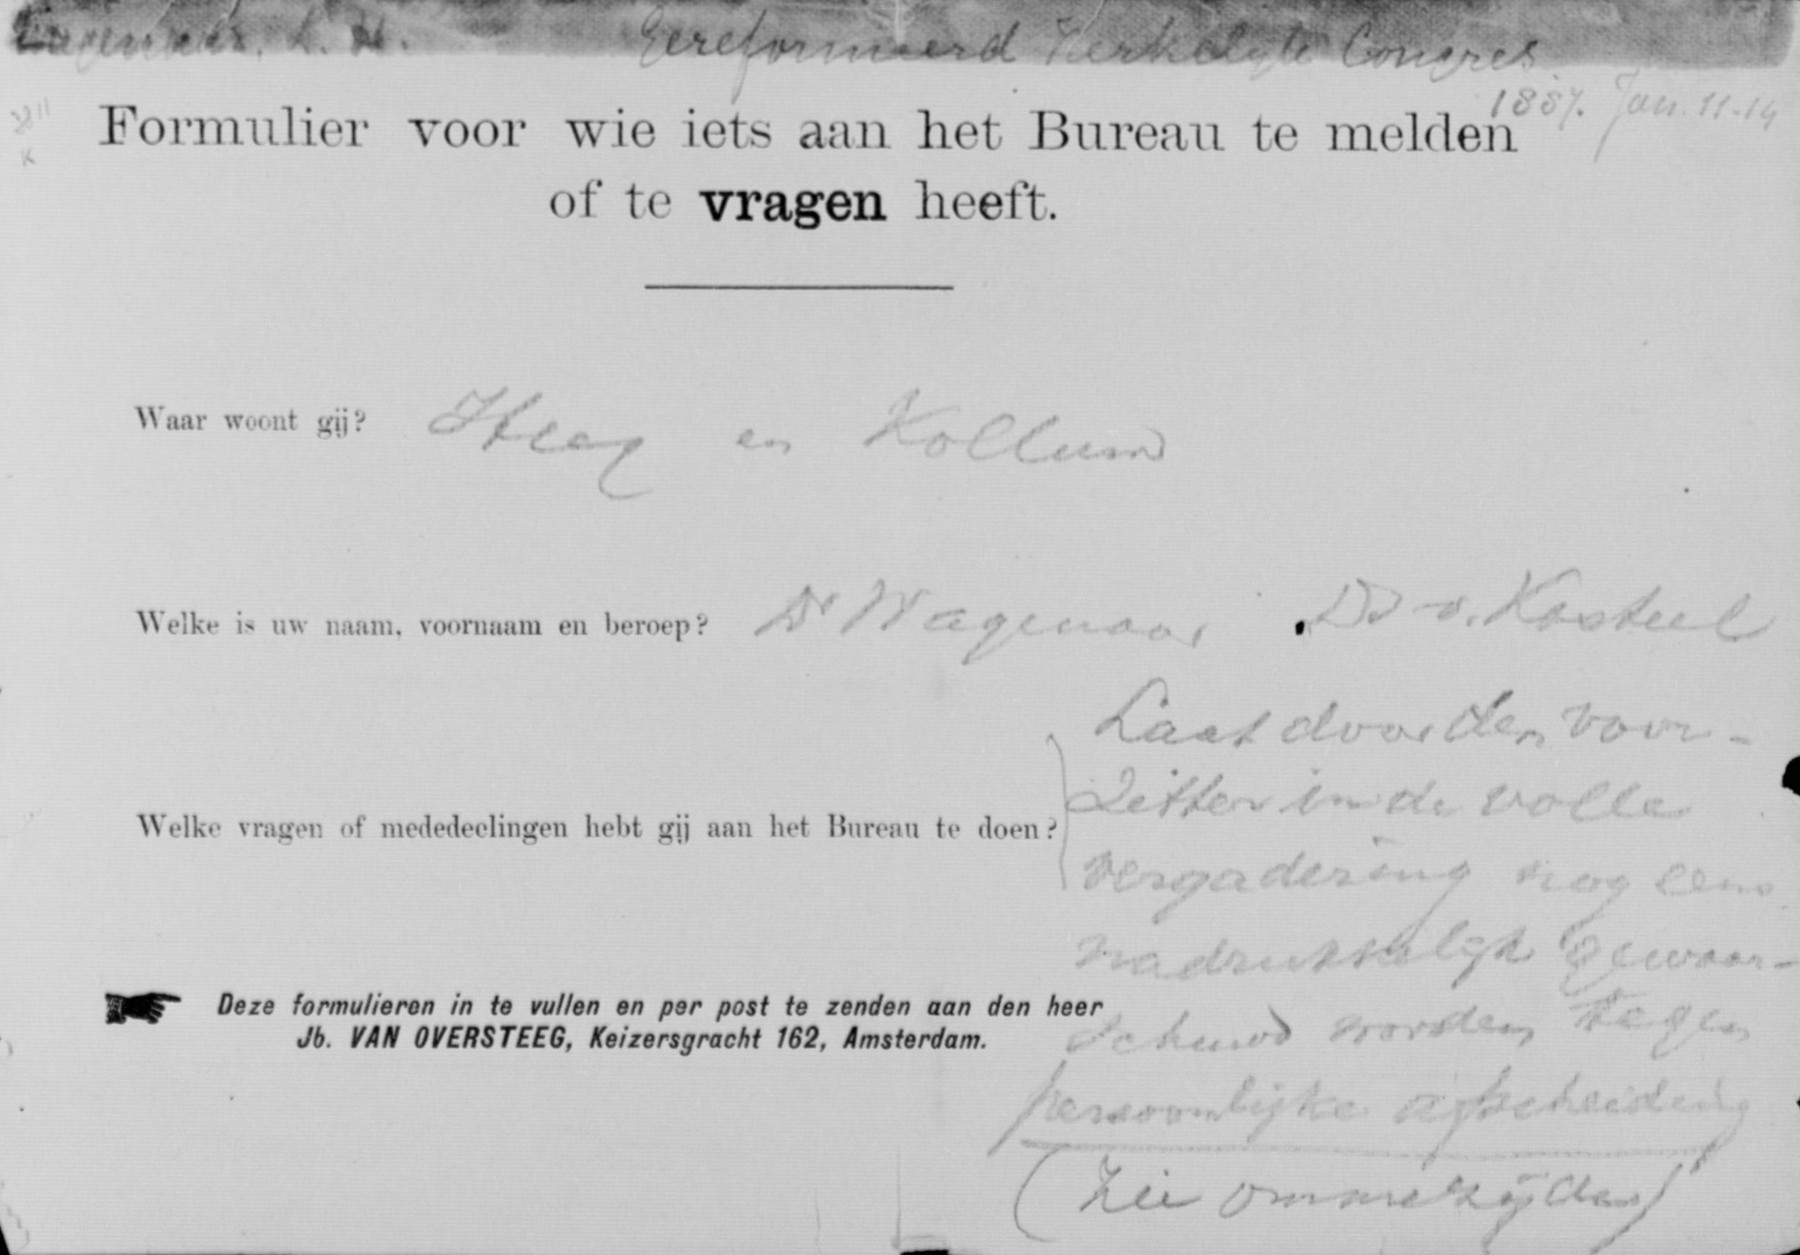 Wagenaar, L. H.
Gereformeerd Kerkelijk Congres
1887. Jan. 11-14
Formulier voor wie iets aan het Bureau te melden
of te vragen heeft.
Waar woont gij? Heeg en Kollum
Welke is uw naam, voornaam en beroep? Dr Wagenaar. Ds v. Kasteel
Laat door den voor-
zitter in de volle
Welke vragen of mededeelingen hebt gij aan het Bureau te doen?
vergadering nog eens
nadrukkelijk gewaar-
Deze formulieren in te vullen en per post te zenden aan den heer
Jb. VAN OVERSTEEG, Keizersgracht 162, Amsterdam.
schuwd worden tegen
persoonlijke afscheiding
(Zie ommezijde)